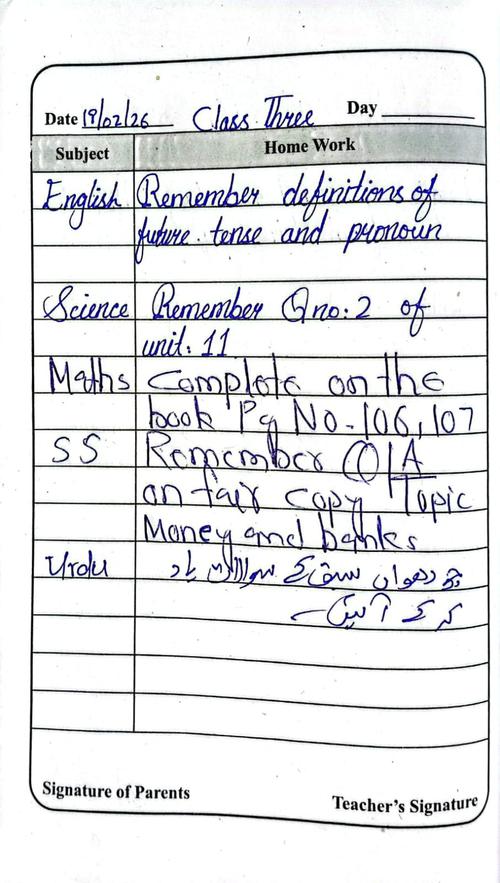 Date 19/02/26 Class Three Day
Subject Home Work
English Remember definitions of
future tense and pronoun
Science Remember Q no: 2 of
unit: 11
Maths Complete on the
book Pg No-106,107
SS Remember Q/A
on fair copy Topic
Money and banks
Urdu چودھواں سبق کے سوالات یاد
کر کے آئیں۔
Signature of Parents Teacher's Signature